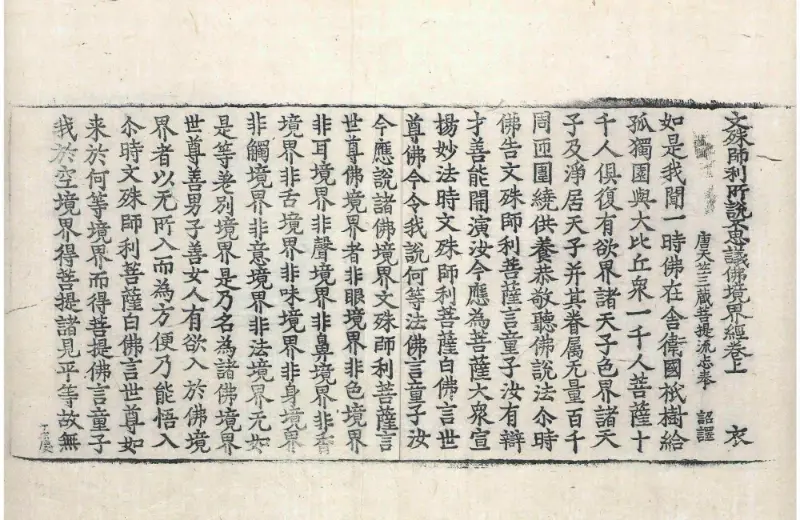 文殊師利所說不思議佛境界經卷上 衣
唐天竺三藏菩提流志奉 詔譯
如是我聞一時佛在舍衛國祇樹給
孤獨園與大比丘衆一千人菩薩十
千人俱復有欲界諸天子色界諸天
子及淨居天子并其眷属无量百千
周匝圍繞供養恭敬聽佛說法尒時
佛告文殊師利菩薩言童子汝有辯
才善能開演汝今應為菩薩大衆宣
揚妙法時文殊師利菩薩白佛言世
尊佛今令我說何等法佛言童子汝
今應說諸佛境界文殊師利菩薩言
世尊佛境界者非眼境界非色境界
非耳境界非聲境界非鼻境界非香
境界非舌境界非味境界非身境界
非觸境界非意境界非法境界无如
是等差別境界是乃名為諸佛境界
世尊善男子善女人有欲入於佛境
界者以无所入而為方便乃能悟入
尒時文殊師利菩薩白佛言世尊如
来於何等境界而得菩提佛言童子
我於空境界得菩提諸見平等故無